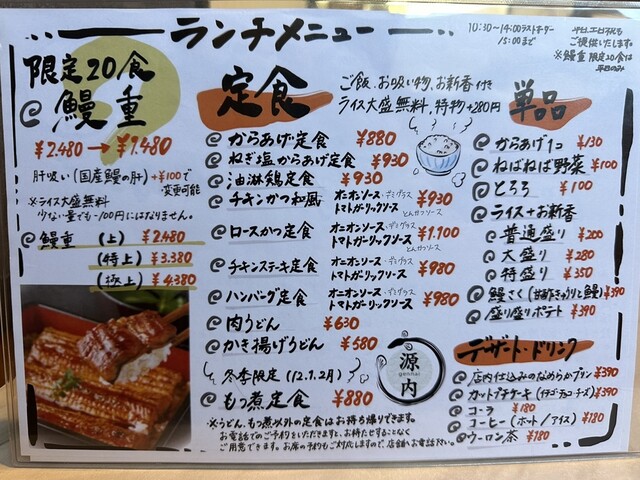 ランチメニュー
10:30~14:00ラストオーダー
15:00まで
平日、土日祝も
ご提供いたします。
※鰻重限定20食は
平日のみ
限定20食
鰻重
¥2.480→¥1.480
肝吸い(国産鰻の肝)+¥100で
変更可能
※ライス大盛無料
少ない量でも-100円にはなりません。
鰻重 (上) ¥2.480
(特上) ¥3.380
(極上) ¥4.380
定食
ご飯、お吸い物、お新香付き
ライス大盛無料、特物+280円
からあげ定食 ¥880
ねぎ塩からあげ定食 ¥930
油淋鶏定食 ¥930
チキンかつ和風 オニオンソース・デミグラス
トマトガーリックソース とんかつソース ¥930
ロースかつ定食 オニオンソース・デミグラス
トマトガーリックソース とんかつソース ¥1,100
チキンステーキ定食 オニオンソース・デミグラス
トマトガーリックソース ¥980
ハンバーグ定食 オニオンソース・デミグラス
トマトガーリックソース ¥980
肉うどん ¥630
かき揚げうどん ¥580
冬季限定(12.1.2月)
もつ煮定食 ¥880
源内
gennai
※うどん、もつ煮以外の定食はお持ち帰りできます。
お電話でのご予約をいただきますと、お待たせすることなく
ご用意できます。お席の予約もご対応しますので、店舗へお電話下さい。
単品
からあげ1コ ¥130
ねばねば野菜 ¥100
とろろ ¥100
ライス+お新香
普通盛り ¥200
大盛り ¥280
特盛り ¥350
鰻ざく(甘酢きゅうりと鰻) ¥390
盛り盛りポテト ¥390
デザート・ドリンク
店内仕込みのなめらかプリン ¥390
カップケーキ(イチゴ・チョコ・チーズ) ¥390
コーラ ¥180
コーヒー(ホット/アイス) ¥180
ウーロン茶 ¥180